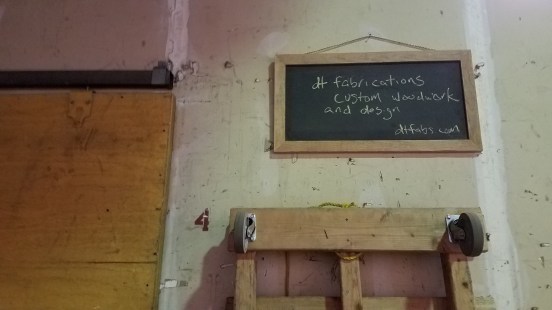 dt fabrications
custom woodwork
and design
dtfabs.com
4